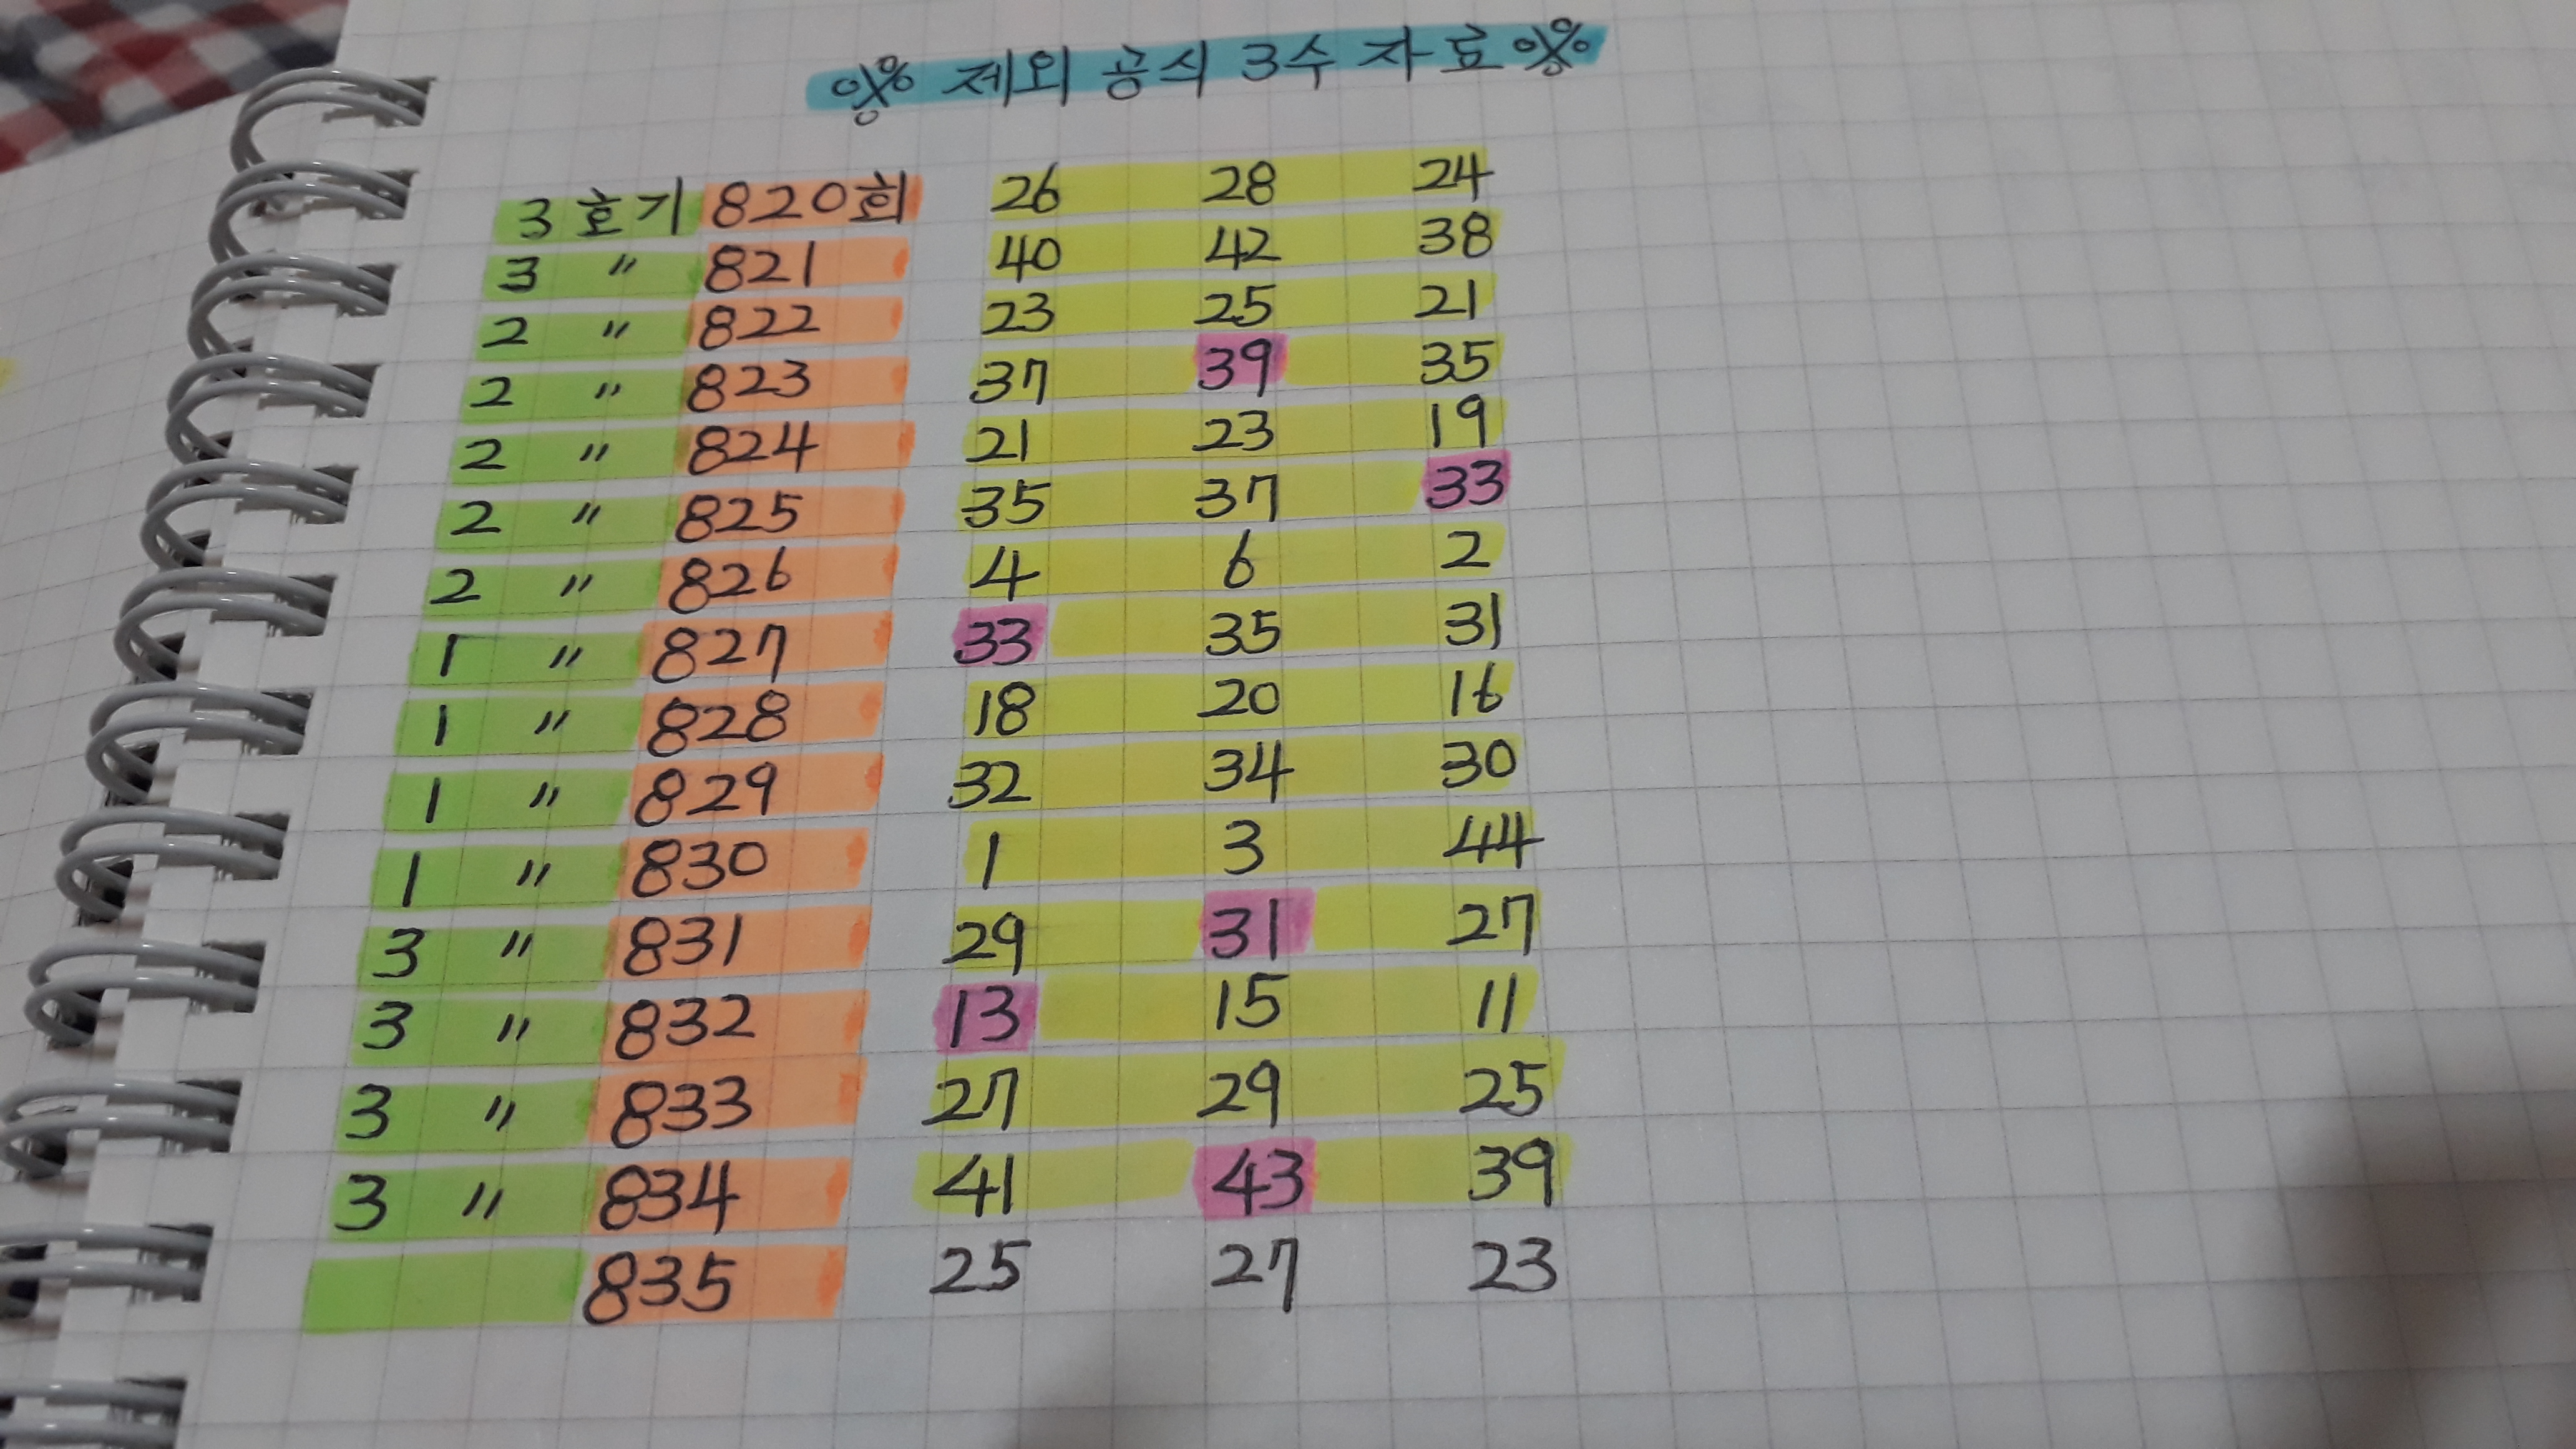 ※ 제외 공식 3수 자료 ※
3 호기 820회 26 28 24
3 〃 821 40 42 38
2 〃 822 23 25 21
2 〃 823 37 39 35
2 〃 824 21 23 19
2 〃 825 35 37 33
2 〃 826 4 6 2
1 〃 827 33 35 31
1 〃 828 18 20 16
1 〃 829 32 34 30
1 〃 830 1 3 44
3 〃 831 29 31 27
3 〃 832 13 15 11
3 〃 833 27 29 25
3 〃 834 41 43 39
835 25 27 23